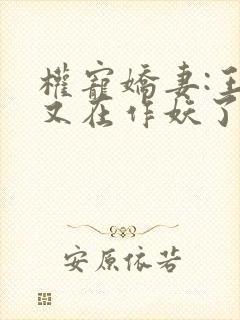 權寵嬌妻:王
又在作妖了
安原依若